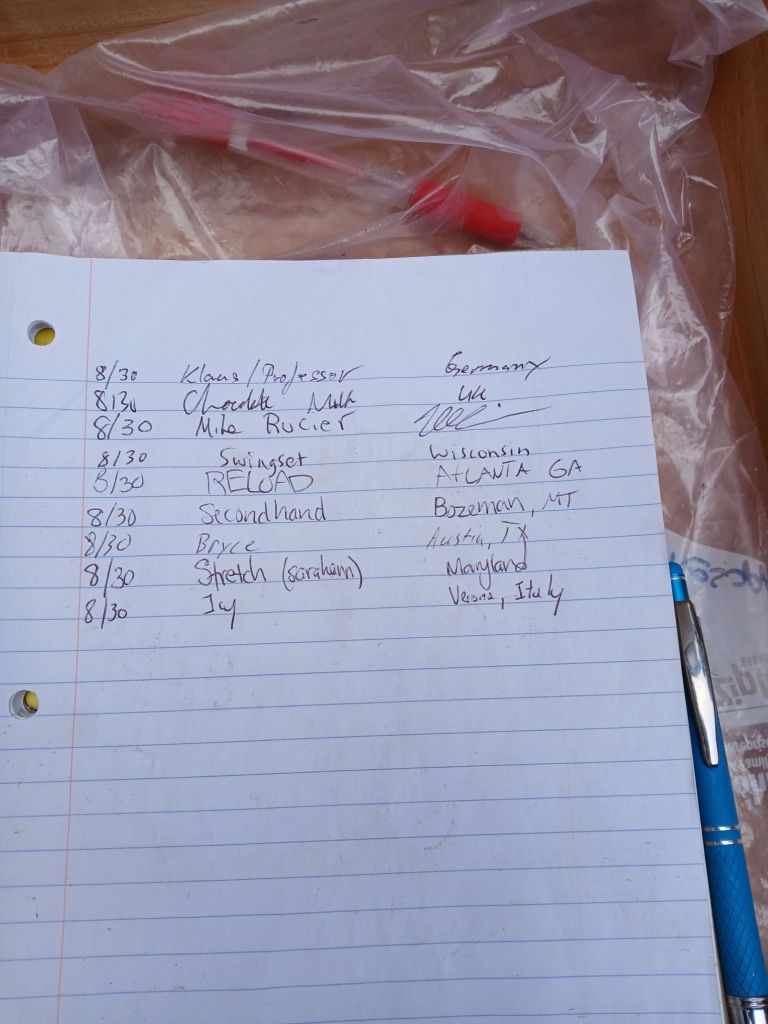 8/30 Klaus/Professor Germany
8/30 Chocolate Milk UK
8/30 Mike Rucier
8/30 Swingset Wisconsin
8/30 RELOAD AtLANTA GA
8/30 Secondhand Bozeman, MT
8/30 Bryce Austin, TX
8/30 Stretch (sarahann) Maryland
8/30 Verona, Italy